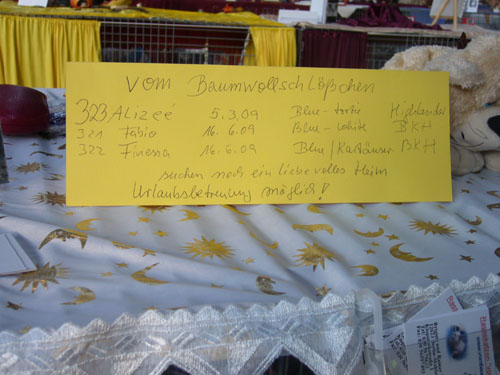 Vom Baumwollschlößchen
323 Alizeé 5.3.09 Blue-tortie Highlander
321 Fabio 16.6.09 Blue-white BKH
322 Finessa 16.6.09 Blue/Kartäuser BKH
suchen noch ein liebevolles Heim
Urlaubsbetreuung möglich!